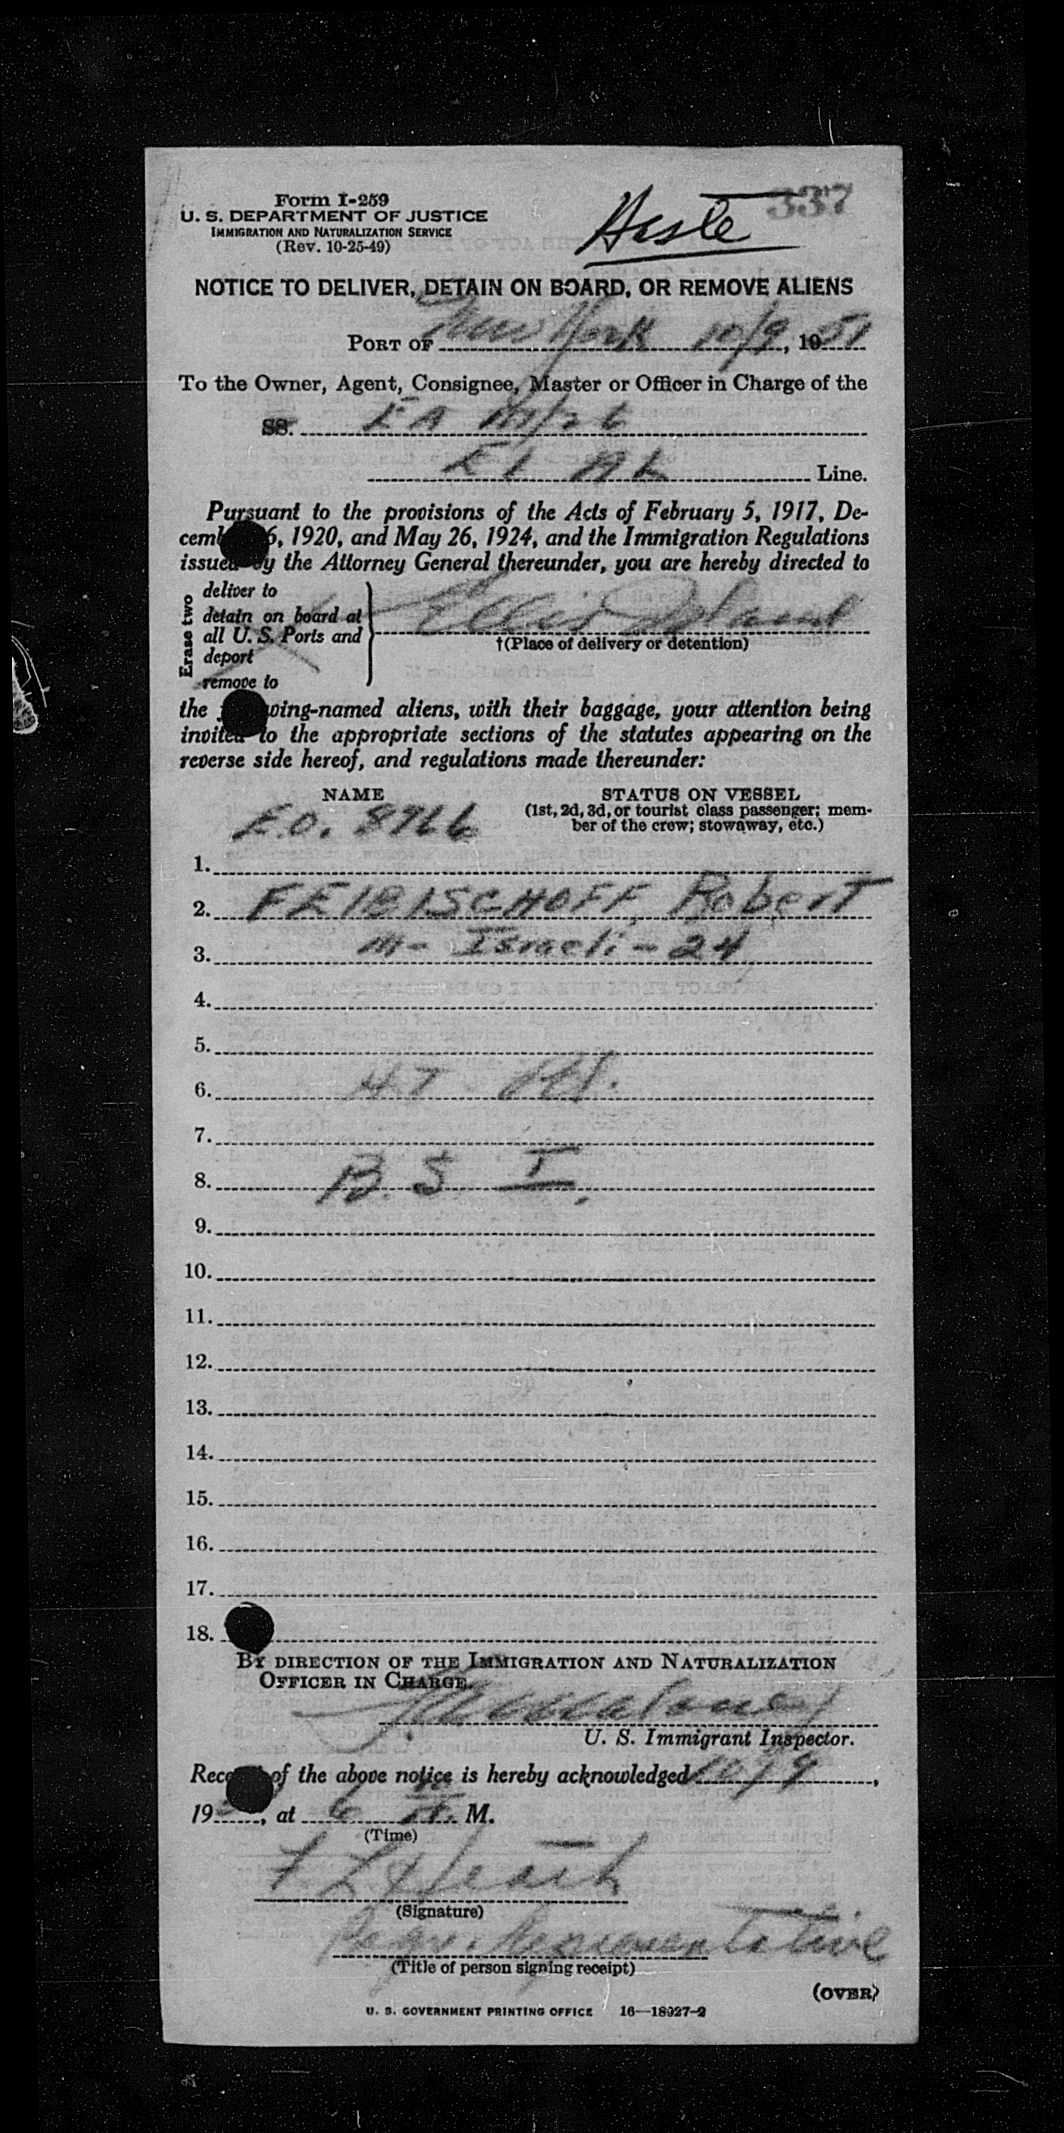 Form I-259
U. S. DEPARTMENT OF JUSTICE
IMMIGRATION AND NATURALIZATION SERVICE
(Rev. 10-25-49)
337
NOTICE TO DELIVER, DETAIN ON BOARD, OR REMOVE ALIENS
PORT OF New York 10/9, 1951
To the Owner, Agent, Consignee, Master or Officer in Charge of the
SS. EA
El AL Line.
Pursuant to the provisions of the Acts of February 5, 1917, De-
6, 1920, and May 26, 1924, and the Immigration Regulations
issued by the Attorney General thereunder, you are hereby directed to
Erase two
deliver to
detain on board at
all U. S. Ports and
deport
remove to
Ellis Island
†(Place of delivery or detention)
the wing-named aliens, with their baggage, your attention being
invited to the appropriate sections of the statutes appearing on the
reverse side hereof, and regulations made thereunder:
NAME STATUS ON VESSEL
(1st, 2d, 3d, or tourist class passenger; mem-
ber of the crew; stowaway, etc.)
E.O. 8766
1.
2. FEIBISCHOFF, Robert
3. m- Israeli - 24
4.
5.
6.
7.
8. B. S. I.
9.
10.
11.
12.
13.
14.
15.
16.
17.
18.
BY DIRECTION OF THE IMMIGRATION AND NATURALIZATION
OFFICER IN CHARGE.
U. S. Immigrant Inspector.
of the above notice is hereby acknowledged 10/9,
19, at 6 M.
(Time)
(Signature)
Representative
(Title of person signing receipt)
(OVER)
U. S. GOVERNMENT PRINTING OFFICE 16—18927-2